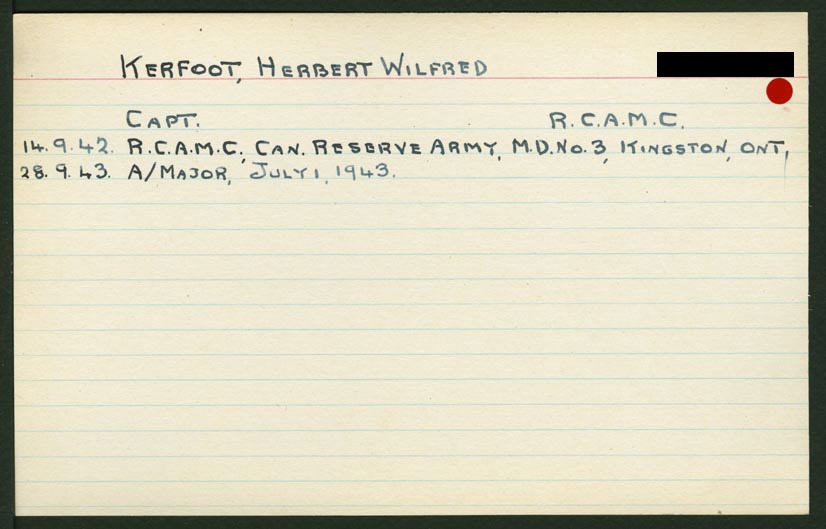 KERFOOT, HERBERT WILFRED
CAPT. R.C.A.M.C.
14.9.42. R.C.A.M.C, CAN. RESERVE ARMY, M.D.No.3, KINGSTON, ONT,
28.9.43. A/MAJOR, JULY 1, 1943.